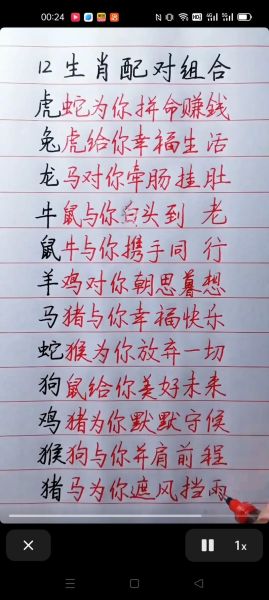 00:24
12生肖配对组合
虎蛇为你拼命赚钱
兔虎给你幸福生活
龙马对你牵肠挂肚
牛鼠与你白头到老
鼠牛与你携手同行
羊鸡对你朝思暮想
马猪与你幸福快乐
蛇猴为你放弃一切
狗鼠给你美好未来
鸡猪为你默默守侯
猴狗与你并肩前程
猪马为你遮风挡雨
1x